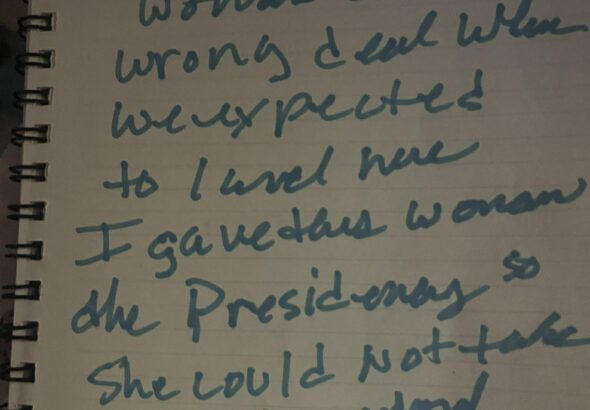 wrong deal when
we expected
to land here
I gave this woman
the Presidency so
She could Not take